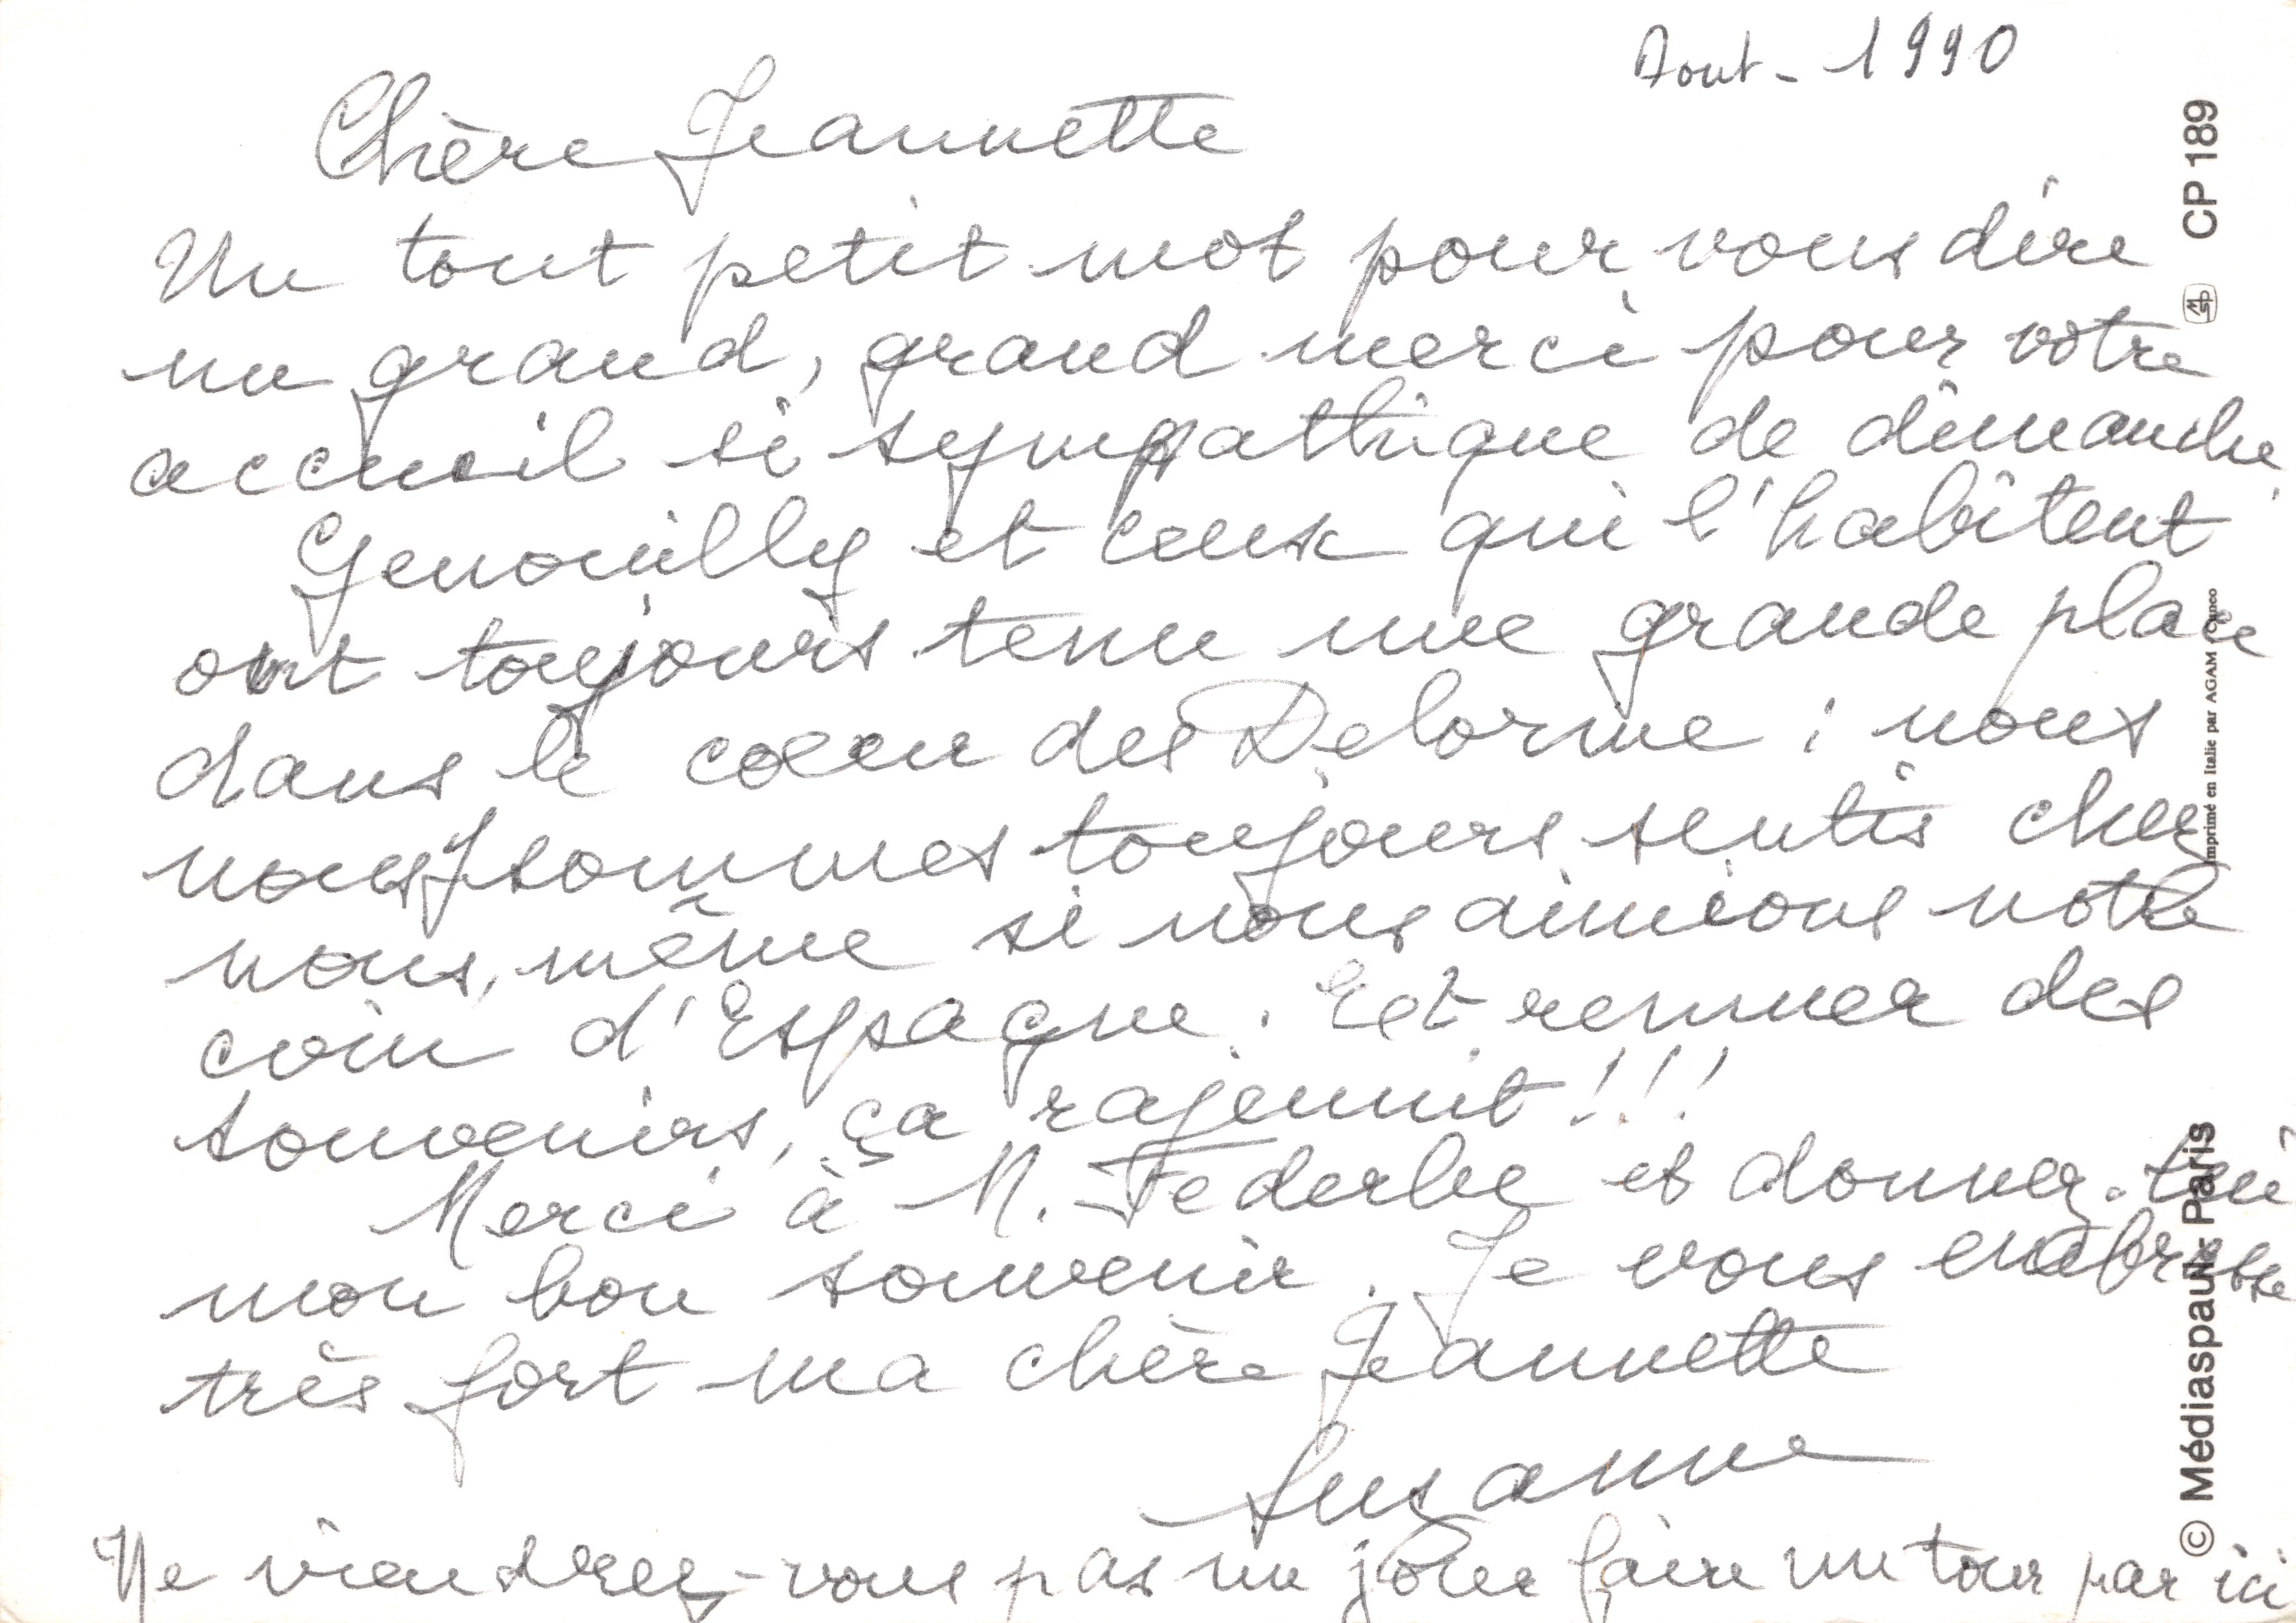 Aout - 1990
Chère Jeannette
Un tout petit mot pour vous dire
un grand, grand merci pour votre
accueil si sympathique de dimanche.
Genouilly et ceux qui l'habitent
ont toujours tenu une grande place
dans le cœur des Delorme : nous
nous y sommes toujours sentis chez
nous, même si nous aimions notre
coin d'Espagne. Et remuer des
souvenirs, ça rajeunit !!!
Merci à M. Federbe et donnez-lui
mon bon souvenir. Je vous embrasse
très fort ma chère Jeannette
Suzanne
Ne viendrez-vous pas un jour faire un tour par ici
CP 189
MSP
Imprimé en Italie par AGAM Cuneo
© Médiaspaul: Paris